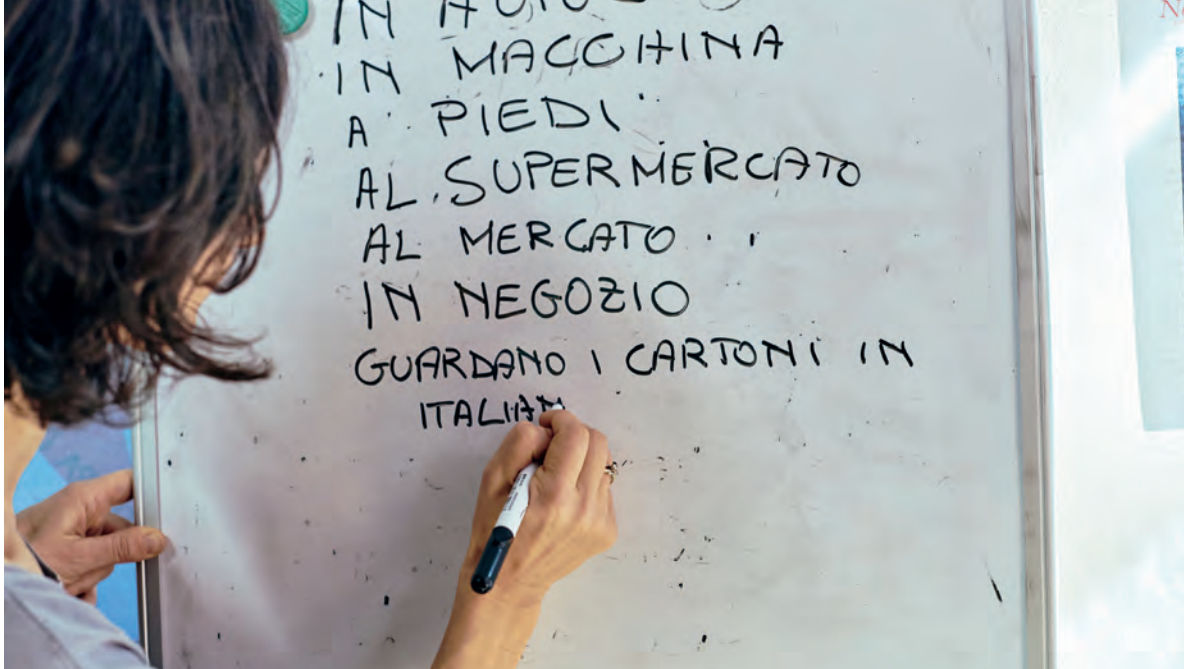 IN
IN MACCHINA
A PIEDI
AL SUPERMERCATO
AL MERCATO
IN NEGOZIO
GUARDANO I CARTONI IN
ITALIAN